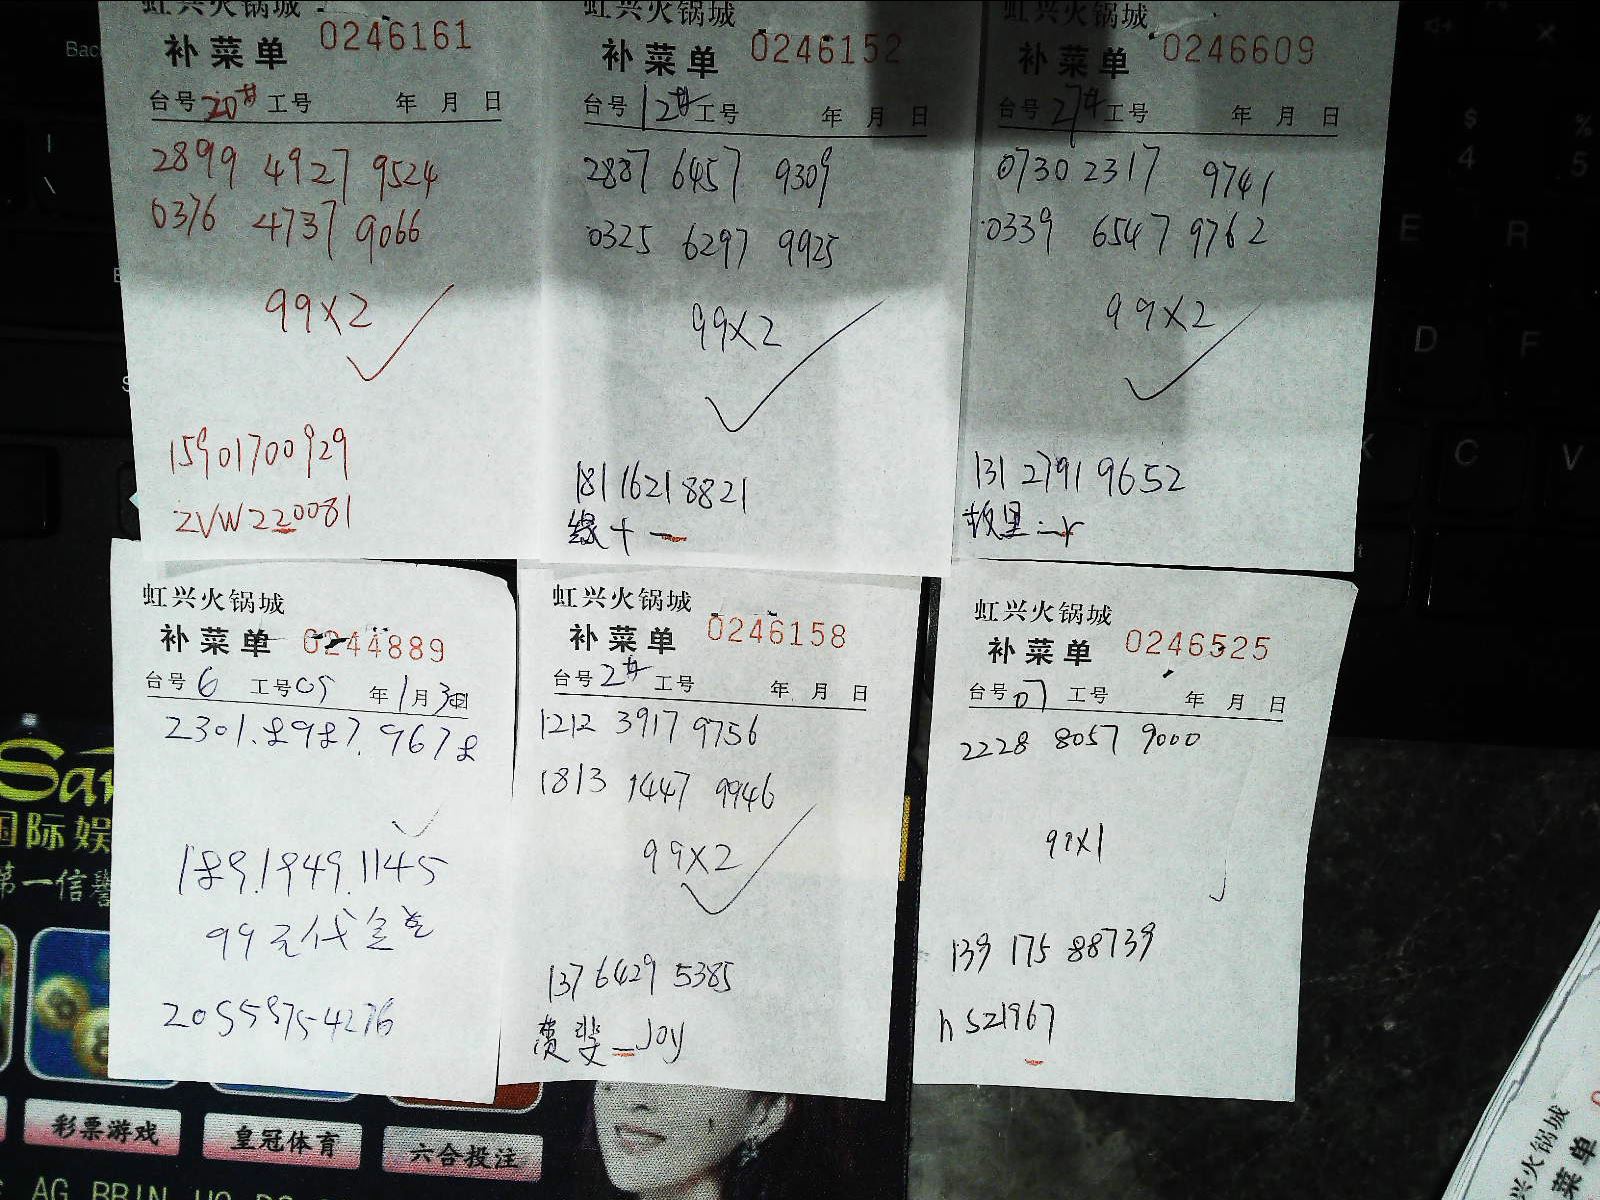 虹兴火锅城
补菜单 0246161
台号 20# 工号 年 月 日
2899 4927 9524
0376 4737 9066
99X2
15901700929
ZVW220081
虹兴火锅城
补菜单 0246152
台号 12# 工号 年 月 日
2887 6457 9309
0325 6297 9925
99X2
181 1621 8821
缘十一
虹兴火锅城
补菜单 0246609
台号 27# 工号 年 月 日
0730 2317 9741
0339 6547 9762
99X2
131 2791 9652
故里
虹兴火锅城
补菜单 0244889
台号 6 工号 05 年 1月 3日
2301.8987.9678
189.1949.1145
99元代金券
20559754276
虹兴火锅城
补菜单 0246158
台号 2# 工号 年 月 日
1212 3917 9756
1813 1447 9946
99X2
137 6429 5385
斐_Joy
虹兴火锅城
补菜单 0246525
台号 07 工号 年 月 日
2228 8057 9000
99X1
139 175 88739
hs21967
国际娱
第一信誉
彩票游戏
皇冠体育
六合投注
AG BBIN
兴火锅城
菜单